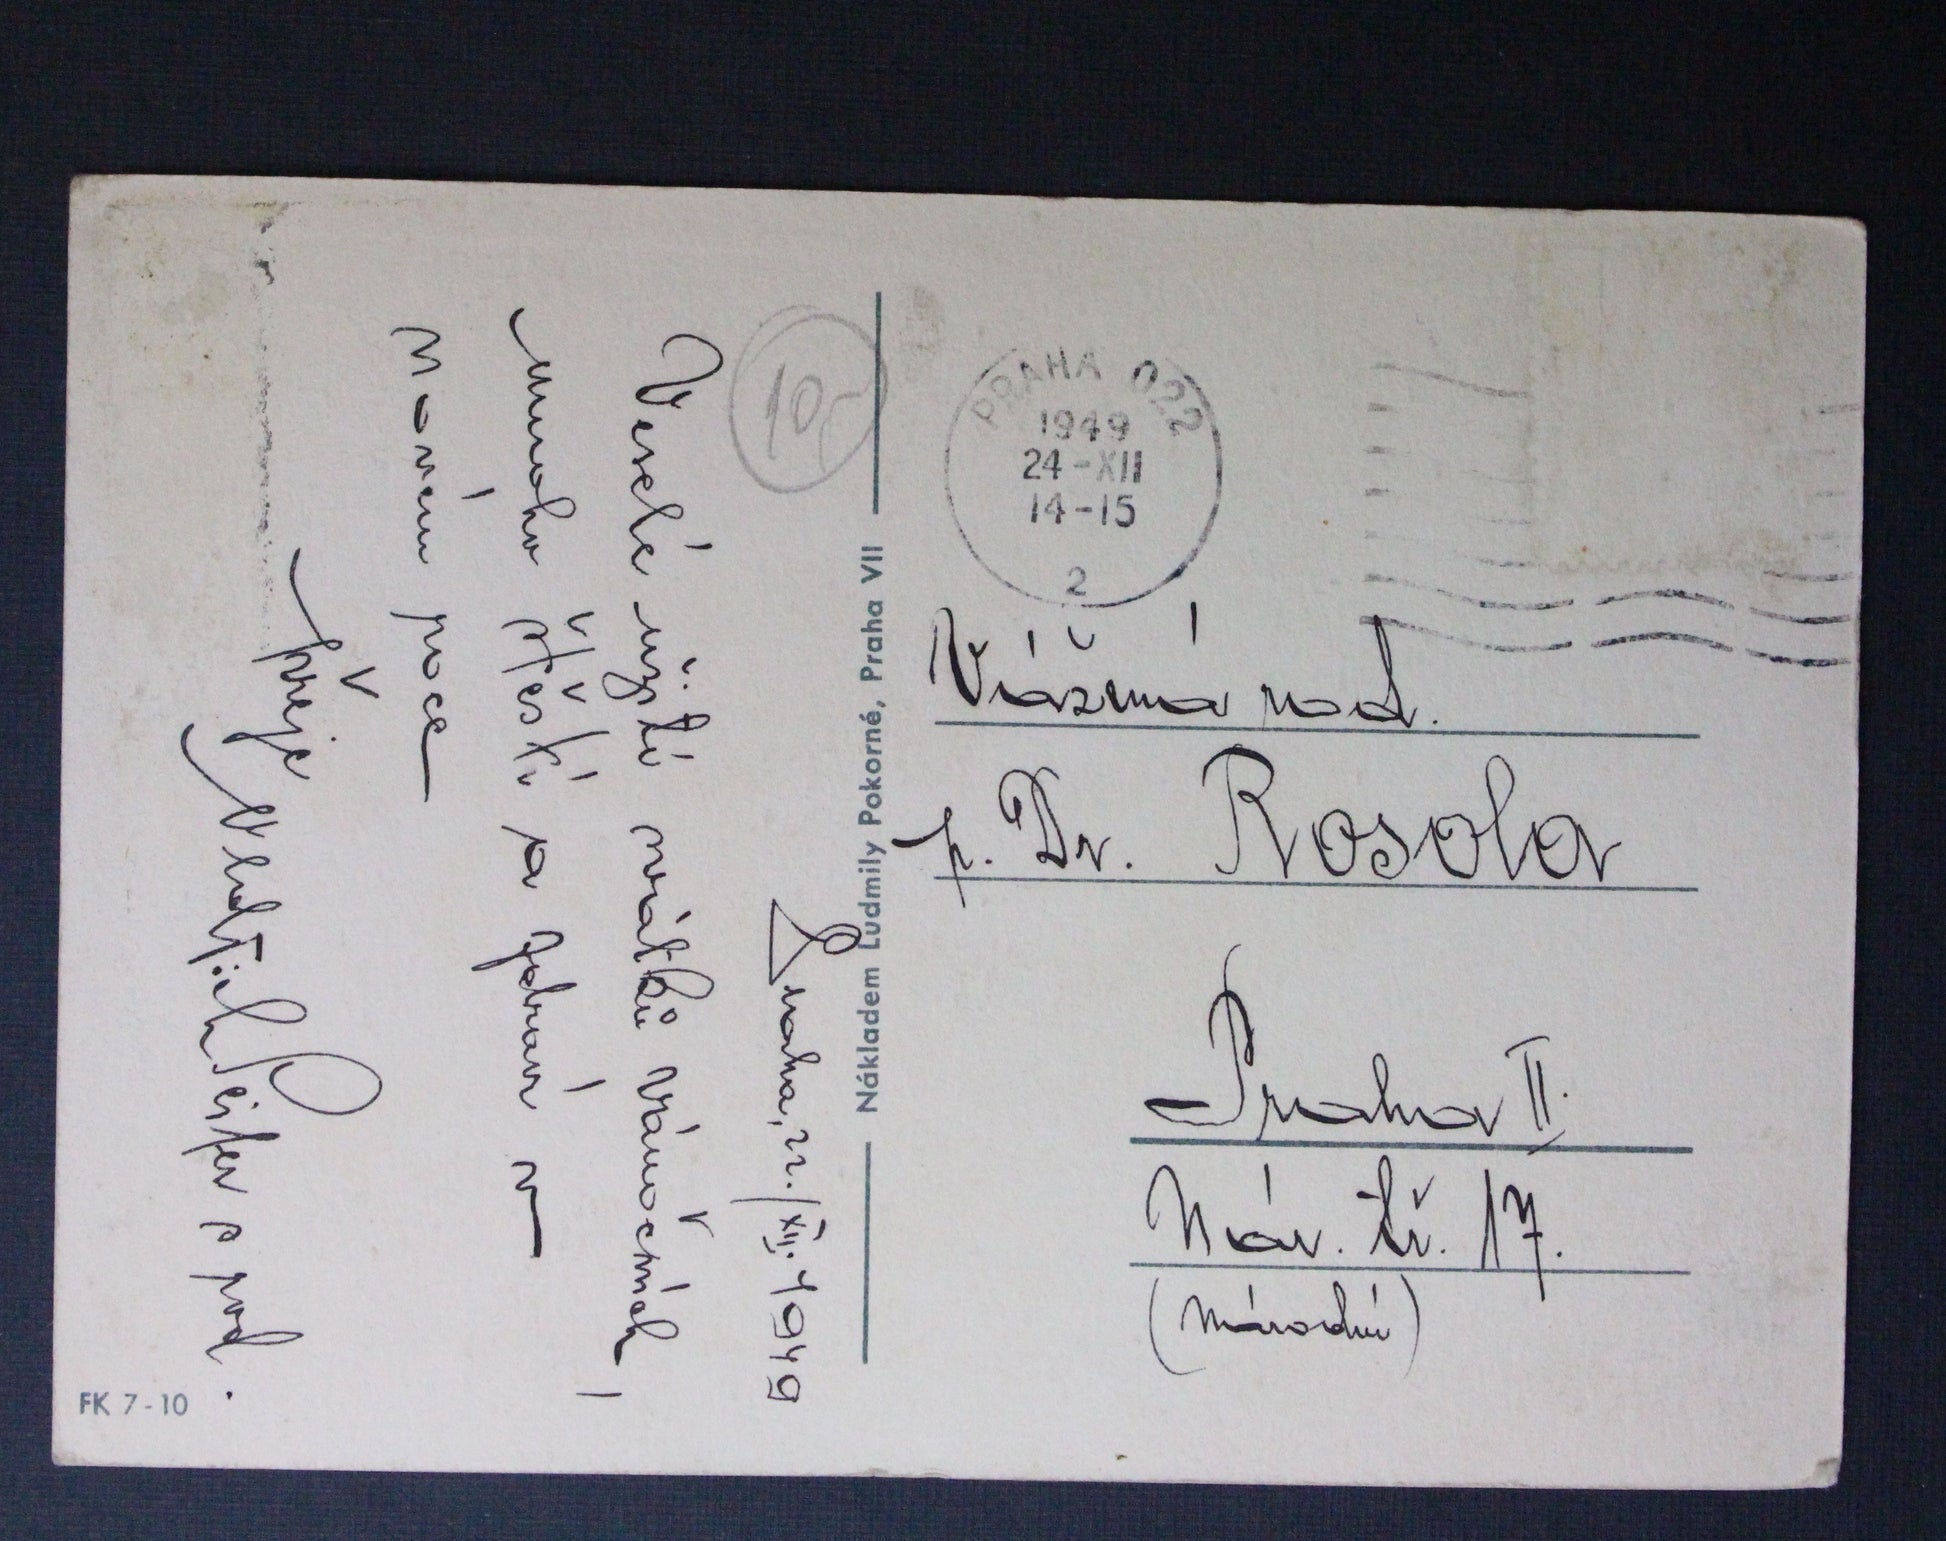 Praha, 22./XII. 1949
Veselé užití svátků vánočních
mnoho štěstí a zdraví v
novém roce
přeje
a pod.
10,-
Nákladem Ludmily Pokorné, Praha VII
FK 7-10
PRAHA 022
1949
24-XII
14-15
2
Vážená rod.
p. Dr. Rosola
Praha II.
Nár. tř. 17.
(Národní)